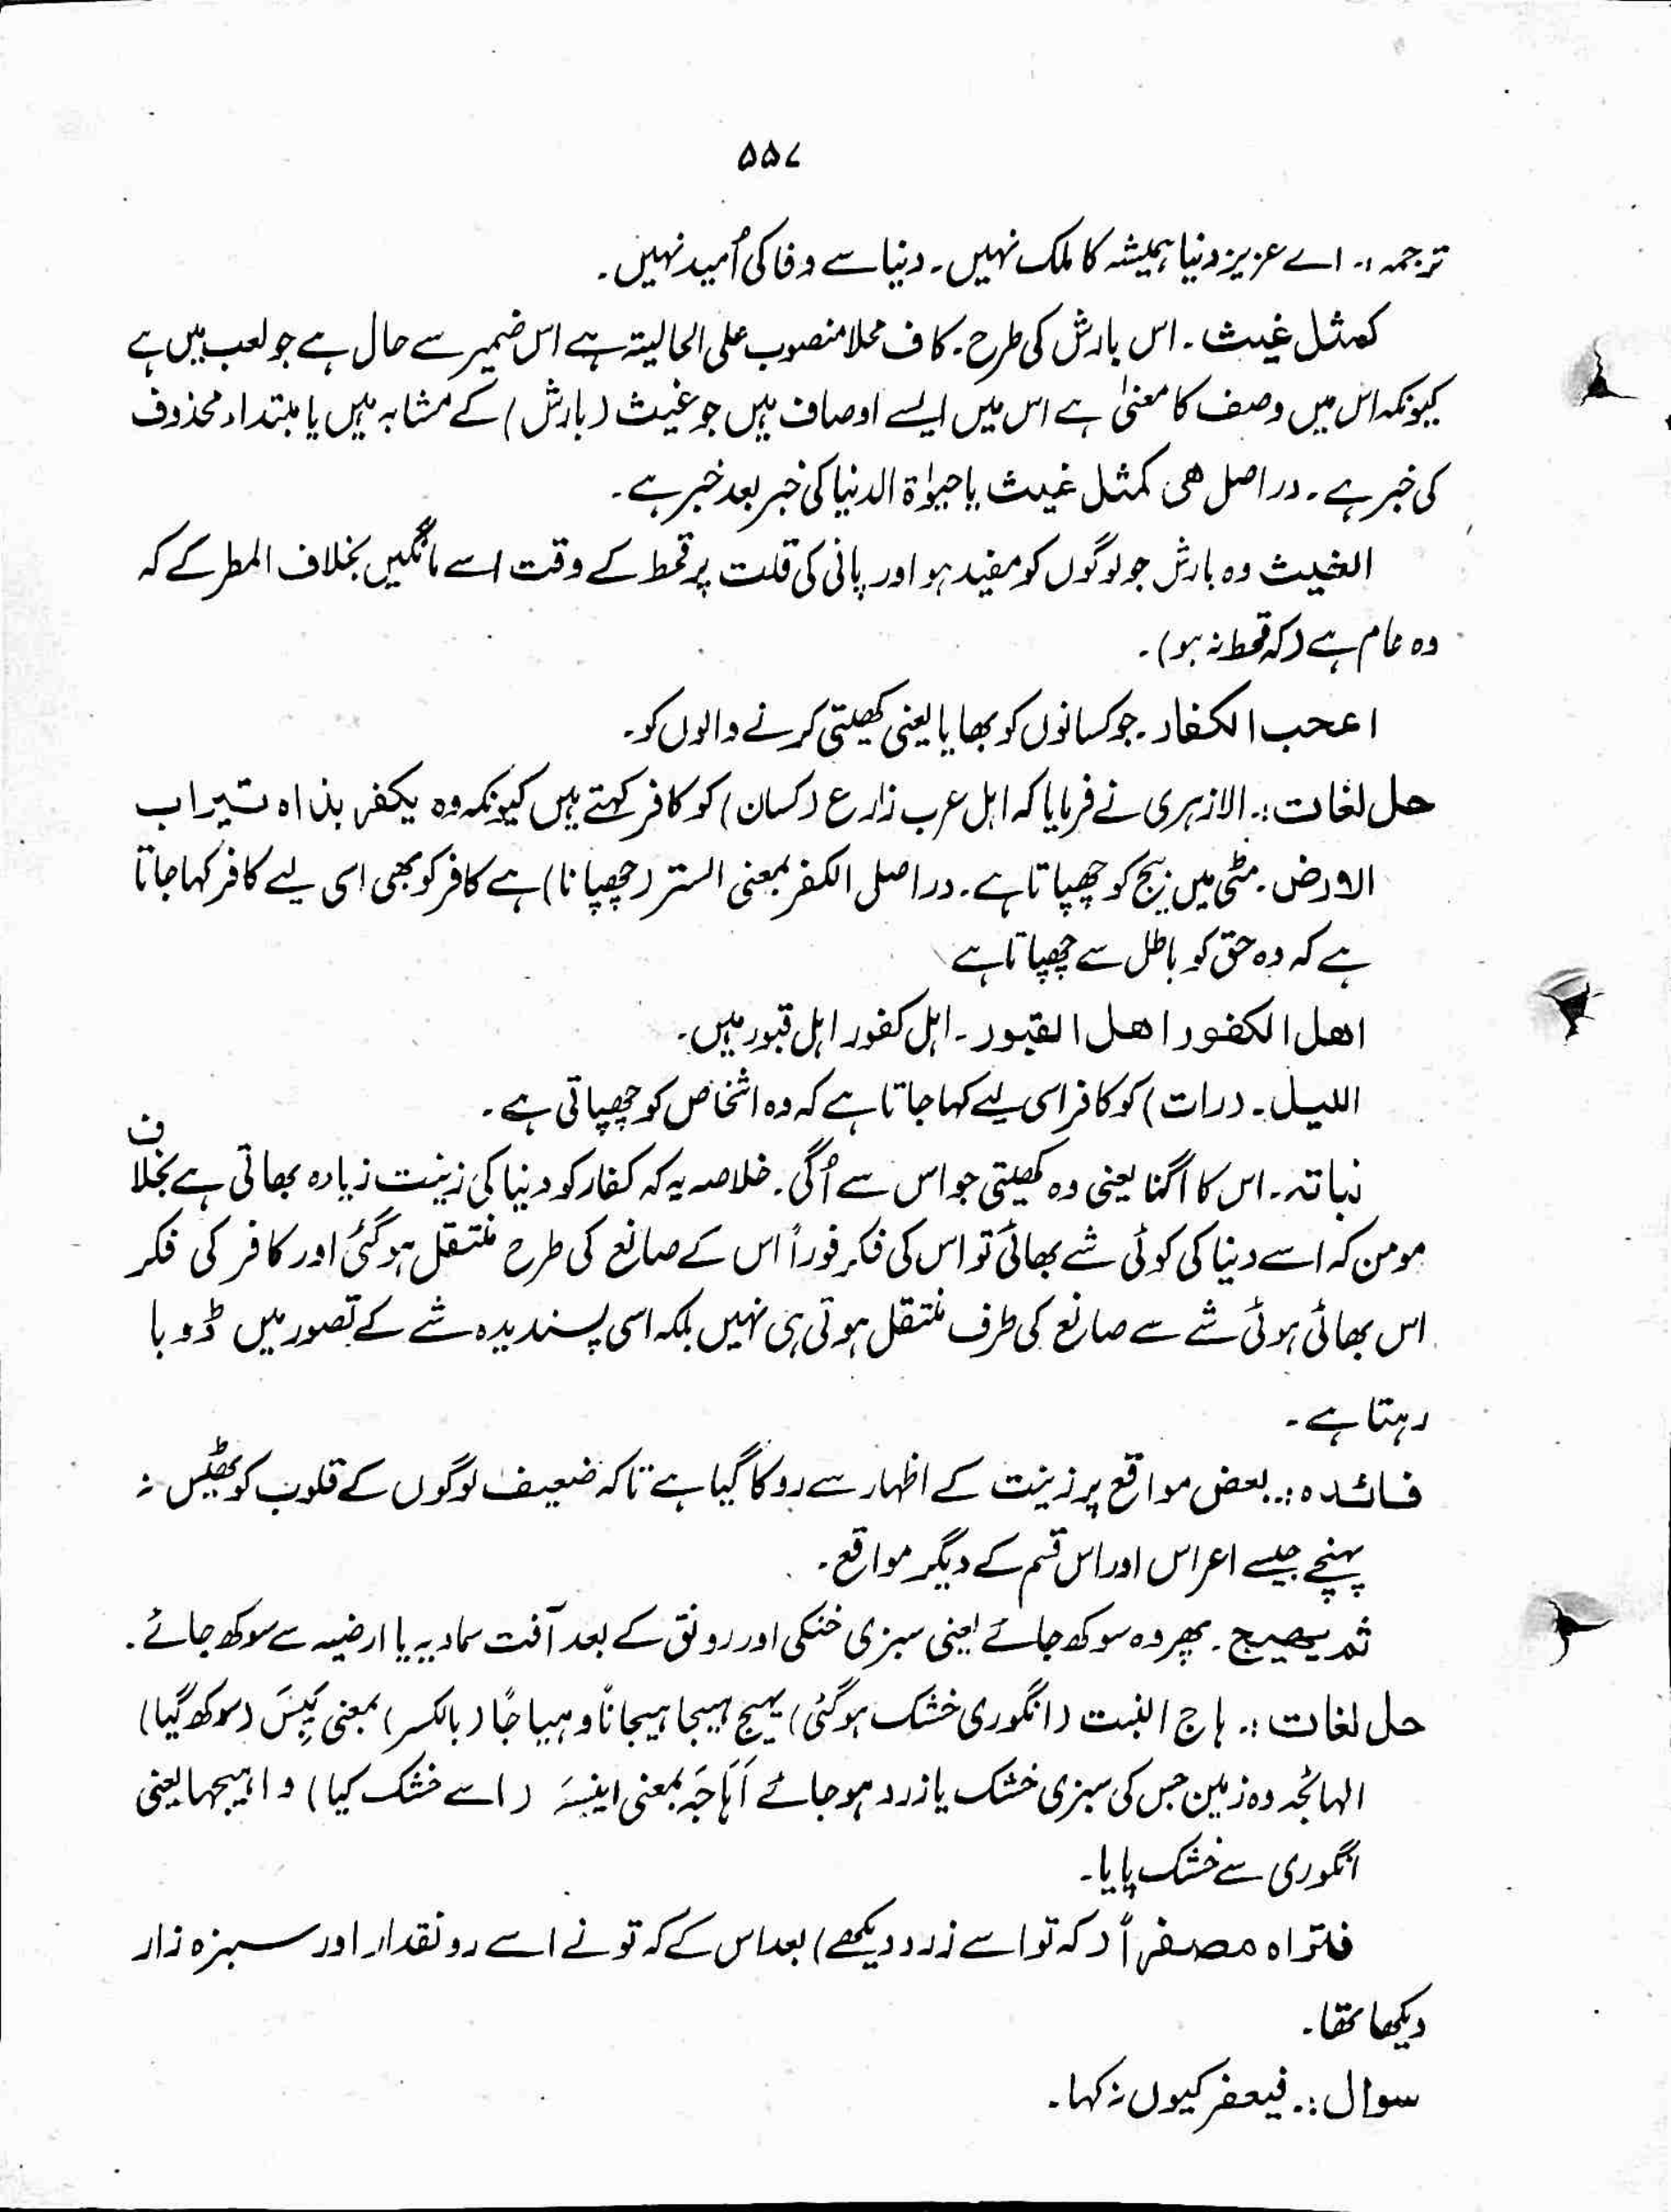 ۵۵۷
ترجمہ :۔ اے عزیز دنیا ہمیشہ کا ملک نہیں ۔ دنیا سے وفا کی اُمید نہیں ۔
کمثل غیث ۔ اس بارش کی طرح ۔ کاف محلا منصوب علی الحالیتہ ہے اس ضمیر سے حال ہے جو لعب میں ہے
کیونکہ اس میں وصف کا معنیٰ ہے اس میں ایسے اوصاف ہیں جو غیث (بارش) کے مشابہ ہیں یا مبتداء محذوف
کی خبر ہے ۔ دراصل ھی کمثل غیث یا حیوٰۃ الدنیا کی خبر بعد خبر ہے ۔
الغیث وہ بارش جو لوگوں کو مفید ہو اور پانی کی قلت پر قحط کے وقت اسے مانگیں بخلاف المطر کے کہ
وہ عام ہے (کہ قحط نہ ہو) ۔
اعجب الکفار ۔ جو کسانوں کو بھایا یعنی کھیتی کرنے والوں کو ۔
حل لغات :۔ الازہری نے فرمایا کہ اہل عرب زارع (کسان) کو کافر کہتے ہیں کیونکہ وہ یکفر بذراہ تیراب
الارض ۔ مٹی میں بیج کو چھپاتا ہے ۔ دراصل الکفر بمعنی الستر (چھپانا) ہے کافر کو بھی اسی لیے کافر کہا جاتا
ہے کہ وہ حق کو باطل سے چھپاتا ہے
اھل الکفور اھل القبور ۔ اہل کفور اہل قبور ہیں ۔
اللیل ۔ (رات) کو کافر اسی لیے کہا جاتا ہے کہ وہ اشخاص کو چھپاتی ہے ۔
نباتہ ۔ اس کا اُگنا یعنی وہ کھیتی جو اس سے اُگی ۔ خلاصہ یہ کہ کفار کو دنیا کی زینت زیادہ بھاتی ہے بخلاف
مومن کہ اسے دنیا کی کوئی شے بھائی تو اس کی فکر فوراً اس کے صانع کی طرح منتقل ہو گئی اور کافر کی فکر
اس بھائی ہوئی شے سے صانع کی طرف منتقل ہوتی ہی نہیں بلکہ اسی پسندیدہ شے کے تصور میں ڈوبا
رہتا ہے ۔
فائدہ :۔ بعض مواقع پر زینت کے اظہار سے روکا گیا ہے تاکہ ضعیف لوگوں کے قلوب کو ٹھیس نہ
پہنچے جیسے اعراس اور اس قسم کے دیگر مواقع ۔
ثم یھیج ۔ پھر وہ سوکھ جائے یعنی سبزی خنکی اور رونق کے بعد آفت سماویہ یا ارضیہ سے سوکھ جائے ۔
حل لغات :۔ ہاج النبت (انگوری خشک ہو گئی) یہیج ہیجا ہیجانًا و ہیاجًا (بالکسر) بمعنی یَبِسَ (سوکھ گیا)
الہائجہ وہ زمین جس کی سبزی خشک یا زرد ہو جائے اَہَاجَہٗ بمعنی ایبسہٗ (اسے خشک کیا) و اہیجہا یعنی
انگوری سے خشک پایا ۔
فتراہ مصفرًا (کہ تو اسے زرد دیکھے) بعد اس کے کہ تو نے اسے رونقدار اور سبزہ زار
دیکھا تھا ۔
سوال :۔ فیصفر کیوں نہ کہا ۔